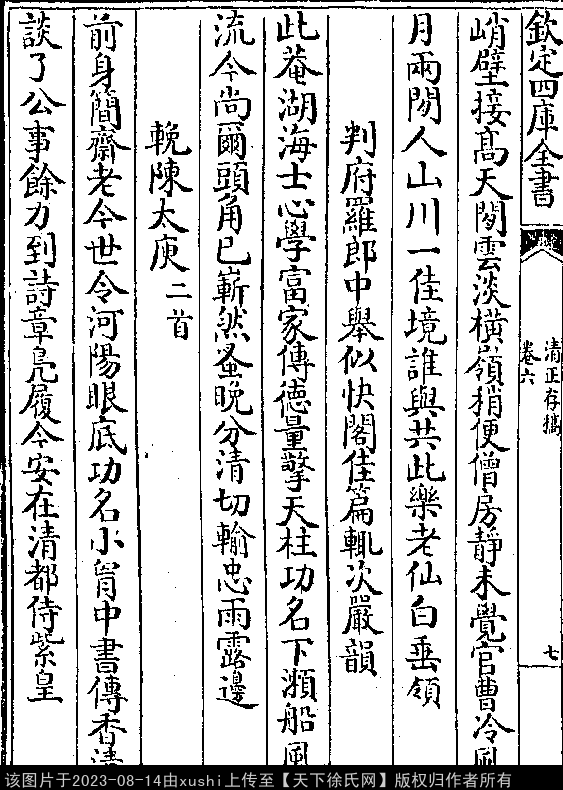 欽定四庫全書
清正存稿
卷六
七
峭壁接髙天閣雲淡橫嶺梢便僧房靜未覺官曹冷風
月兩閒人山川一佳境誰與共此樂老仙白垂領
判府羅郎中舉似快閣佳篇輒次嚴韻
此菴湖海士心學富家傳徳量擎天柱功名下瀬船風
流今尚爾頭角已嶄然蚤晚分清切輸忠雨露邊
輓陳太庾二首
前身簡齋老今世令河陽眼底功名小胷中書傳香清
談了公事餘力到詩章鳬履今安在清都侍紫皇
该图片于2023-08-14由xushi上传至【天下徐氏网】版权归作者所有